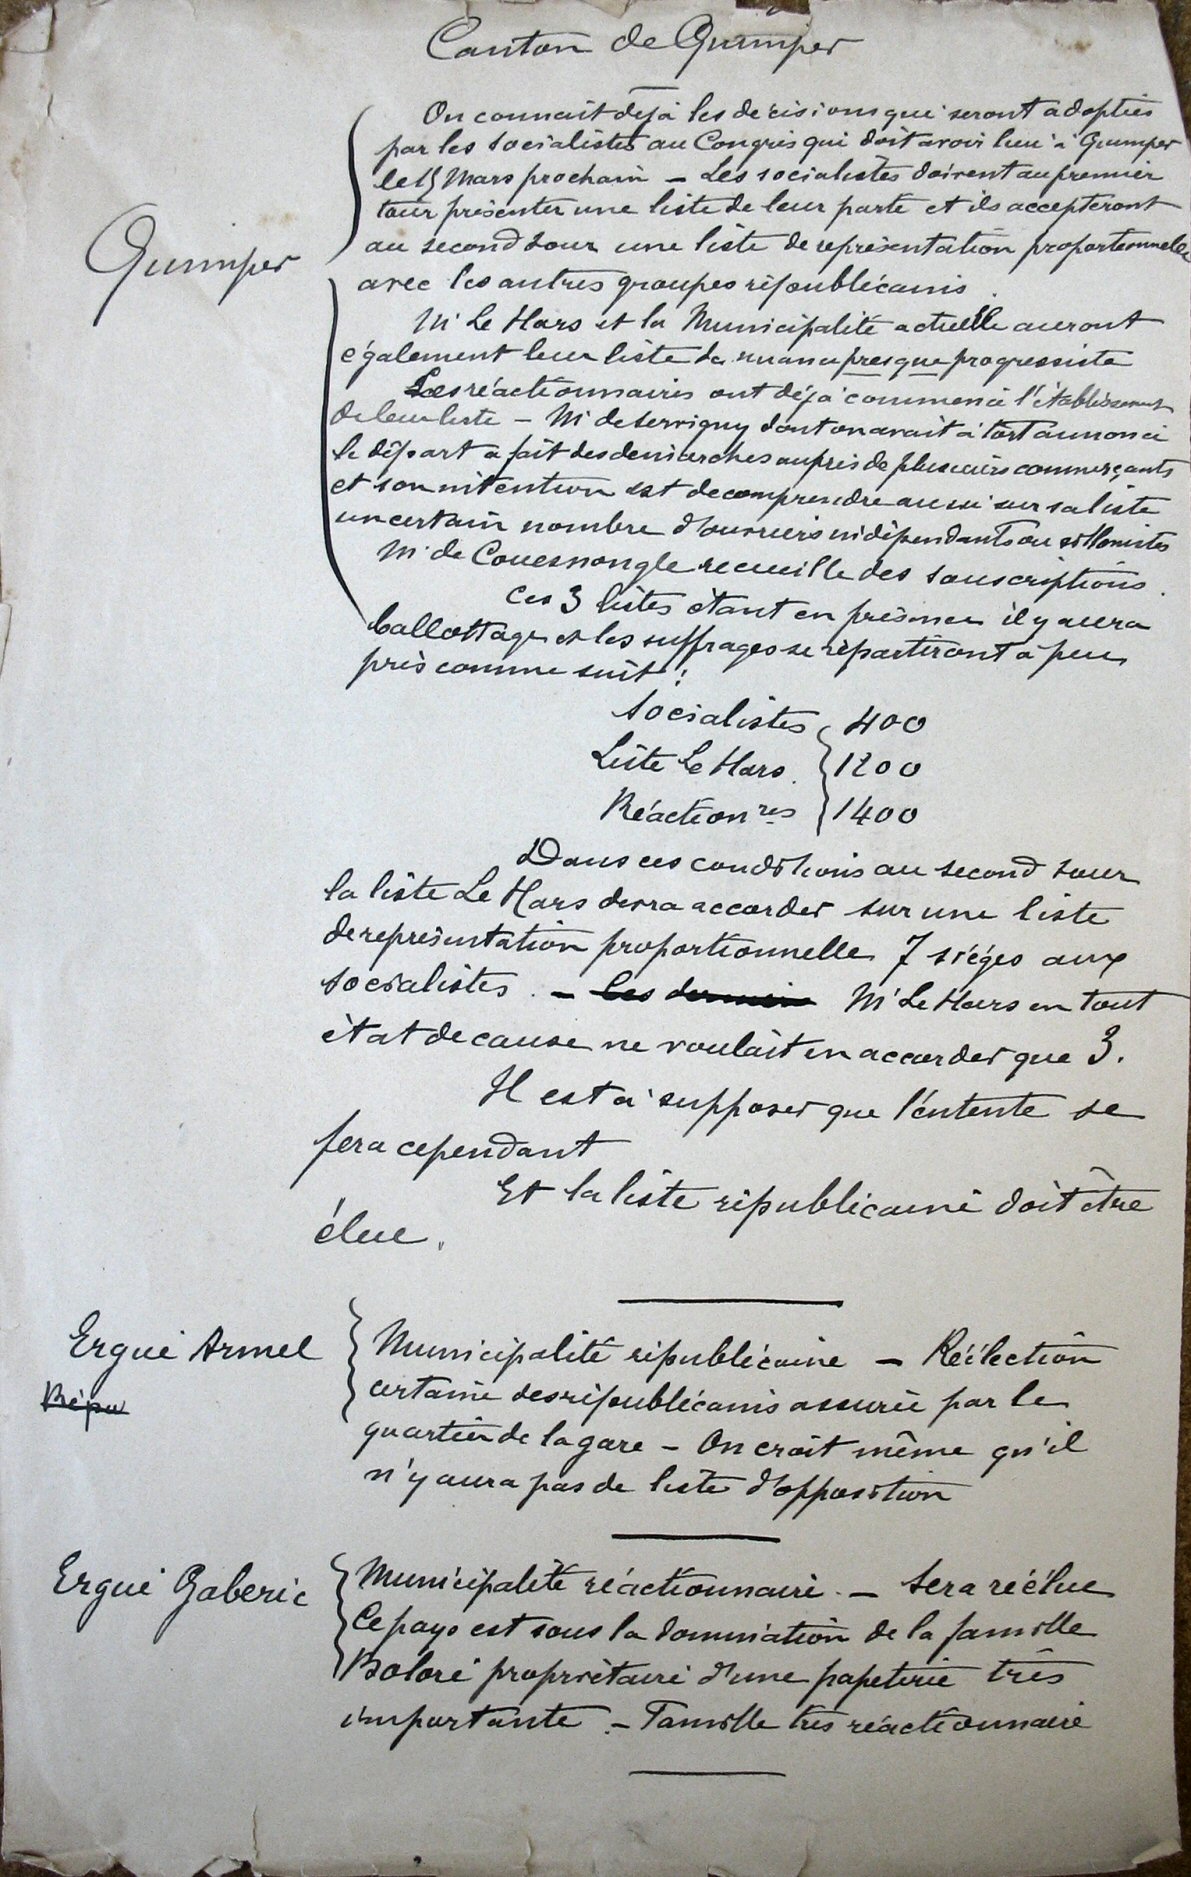 Canton de Quimper
On connait déjà les décisions qui seront adoptées
par les socialistes au Congrès qui doit avoir lieu à Quimper
le 15 Mars prochain – Les socialistes doivent au premier
tour présenter une liste de leur parti et ils accepteront
Quimper
au second tour une liste de représentation proportionnelle
avec les autres groupes républicains.
Mr Le Hars et la Municipalité actuelle auront
également leur liste de nuance presque progressiste
Les réactionnaires ont déjà commencé l'établissement
de leur liste – Mr de Servigny dont on avait à tort annoncé
le départ a fait des démarches auprès de plusieurs commerçants
et son intention est de comprendre aussi sur sa liste
un certain nombre d'ouvriers indépendants ou sillonistes
Mr de Couesnongle recueille des souscriptions.
Ces 3 listes étant en présence il y aura
ballottage et les suffrages se répartiront à peu
près comme suit :
Socialistes 400
Liste Le Hars. 1200
Réactionres 1400
Dans ces conditions au second tour
la liste Le Hars devra accorder sur une liste
de représentation proportionnelle 7 sièges aux
socialistes. – Ces dernier Mr Le Hars en tout
état de cause ne voulait en accorder que 3.
Il est à supposer que l'entente se
fera cependant
Et la liste républicaine doit être
élue.
Ergué Armel
Répu
Municipalité républicaine – Réélection
certaine des républicains assurée par le
quartier de la gare – On croit même qu'il
n'y aura pas de liste d'opposition
Ergué Gaberic
Municipalité réactionnaire. – Sera réélue
Ce pays est sous la domination de la famille
Boloré propriétaire d'une papeterie très
importante. – Famille très réactionnaire